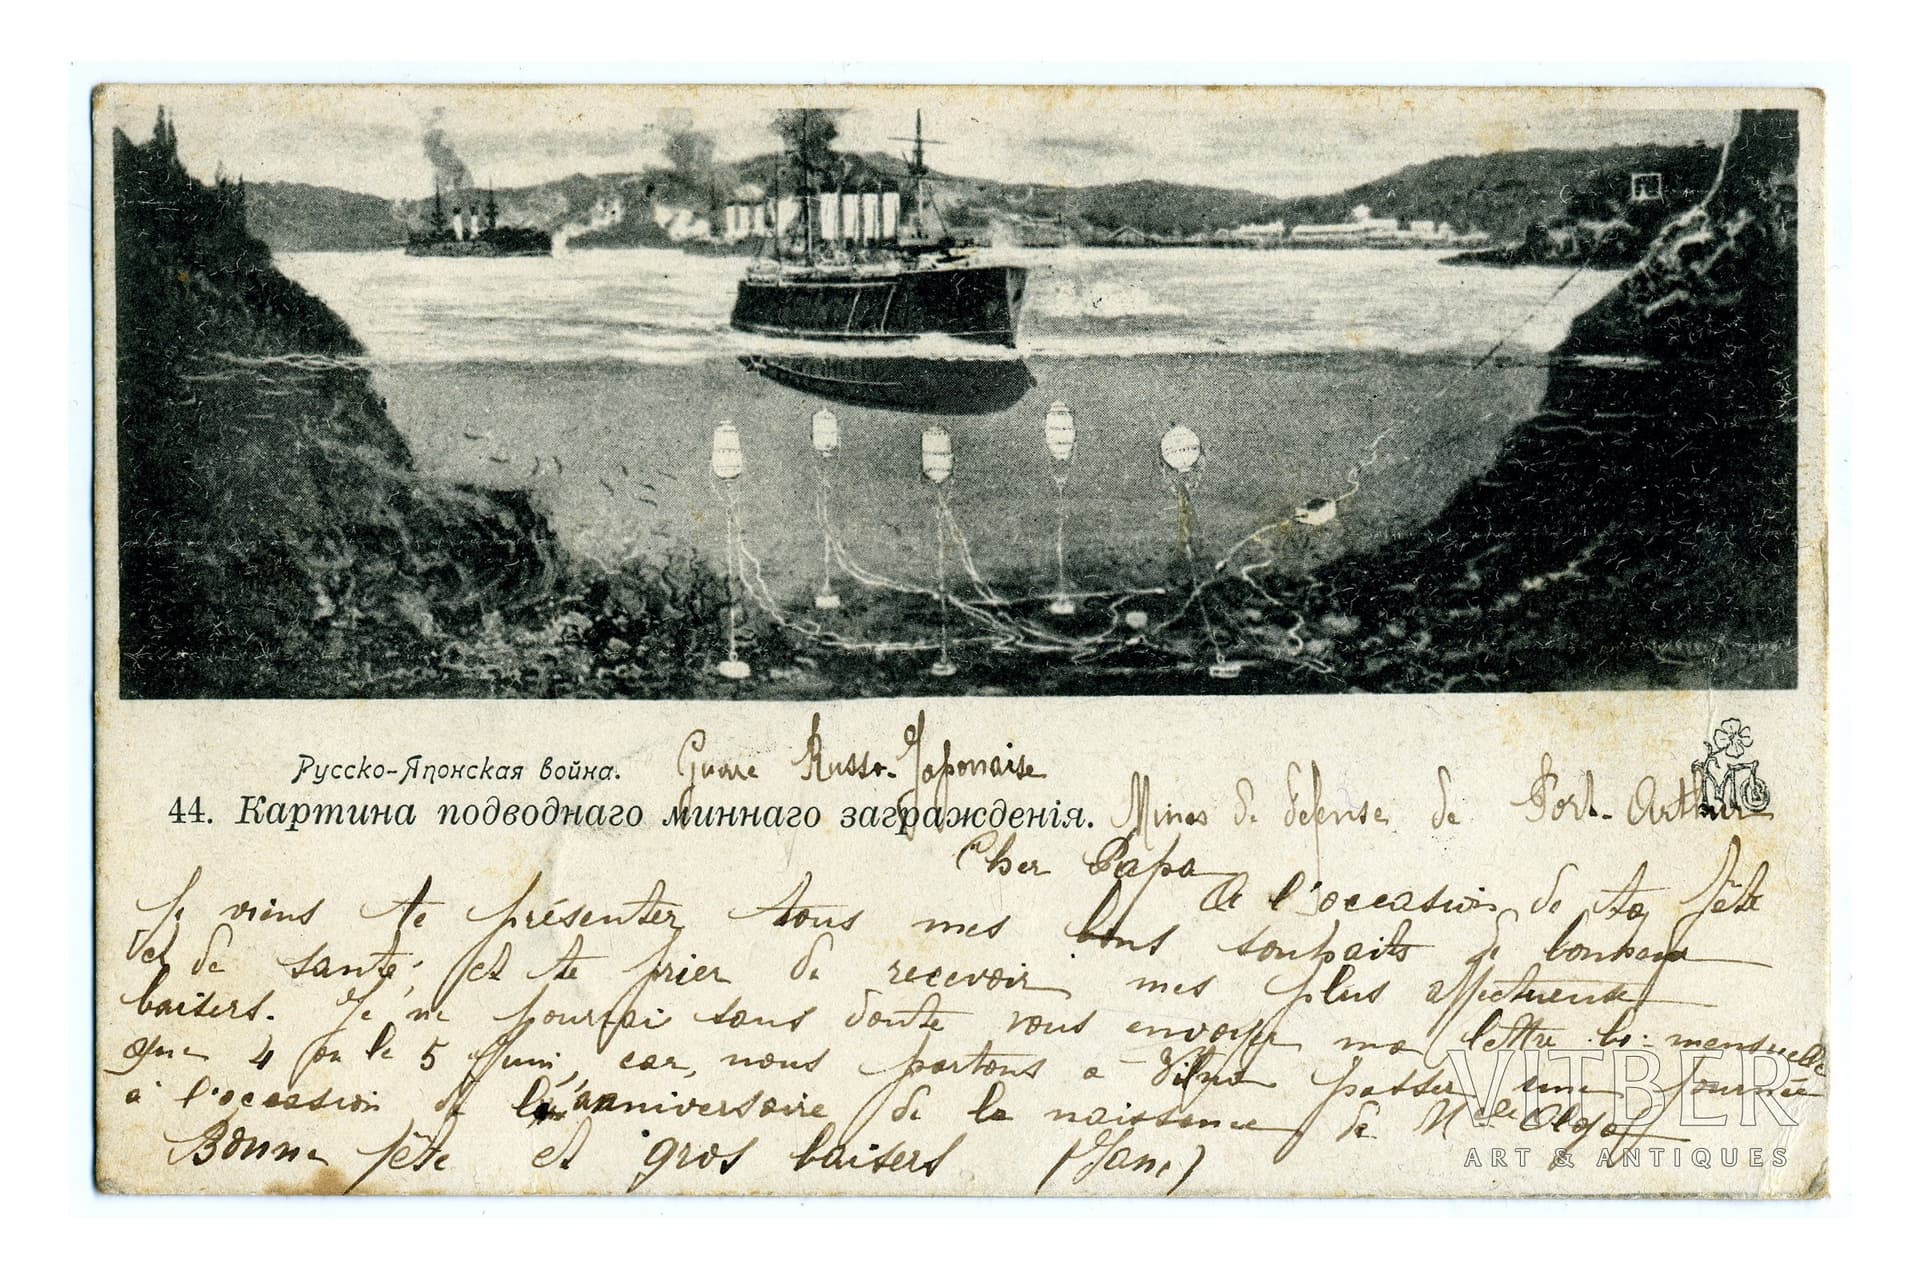 Русско-Японская война. Guerre Russo-Japonaise
44. Картина подводнаго миннаго загражденія. Mines de defense de Port-Arthur
Cher Papa
A l'occasion de ta fête
je viens te présenter tous mes bons souhaits de bonheur
et de santé, et te prier de recevoir mes plus affectueux
baisers. Je ne pourrai sans doute vous envoyer ma lettre bi-mensuelle
que 4 ou le 5 Juin, car, nous partons a Vilna passer une journée
à l'occasion de l'anniversaire de la naissance de Melle Olga
Bonne fête et gros baisers (Jane)
VITBER
ART & ANTIQUES